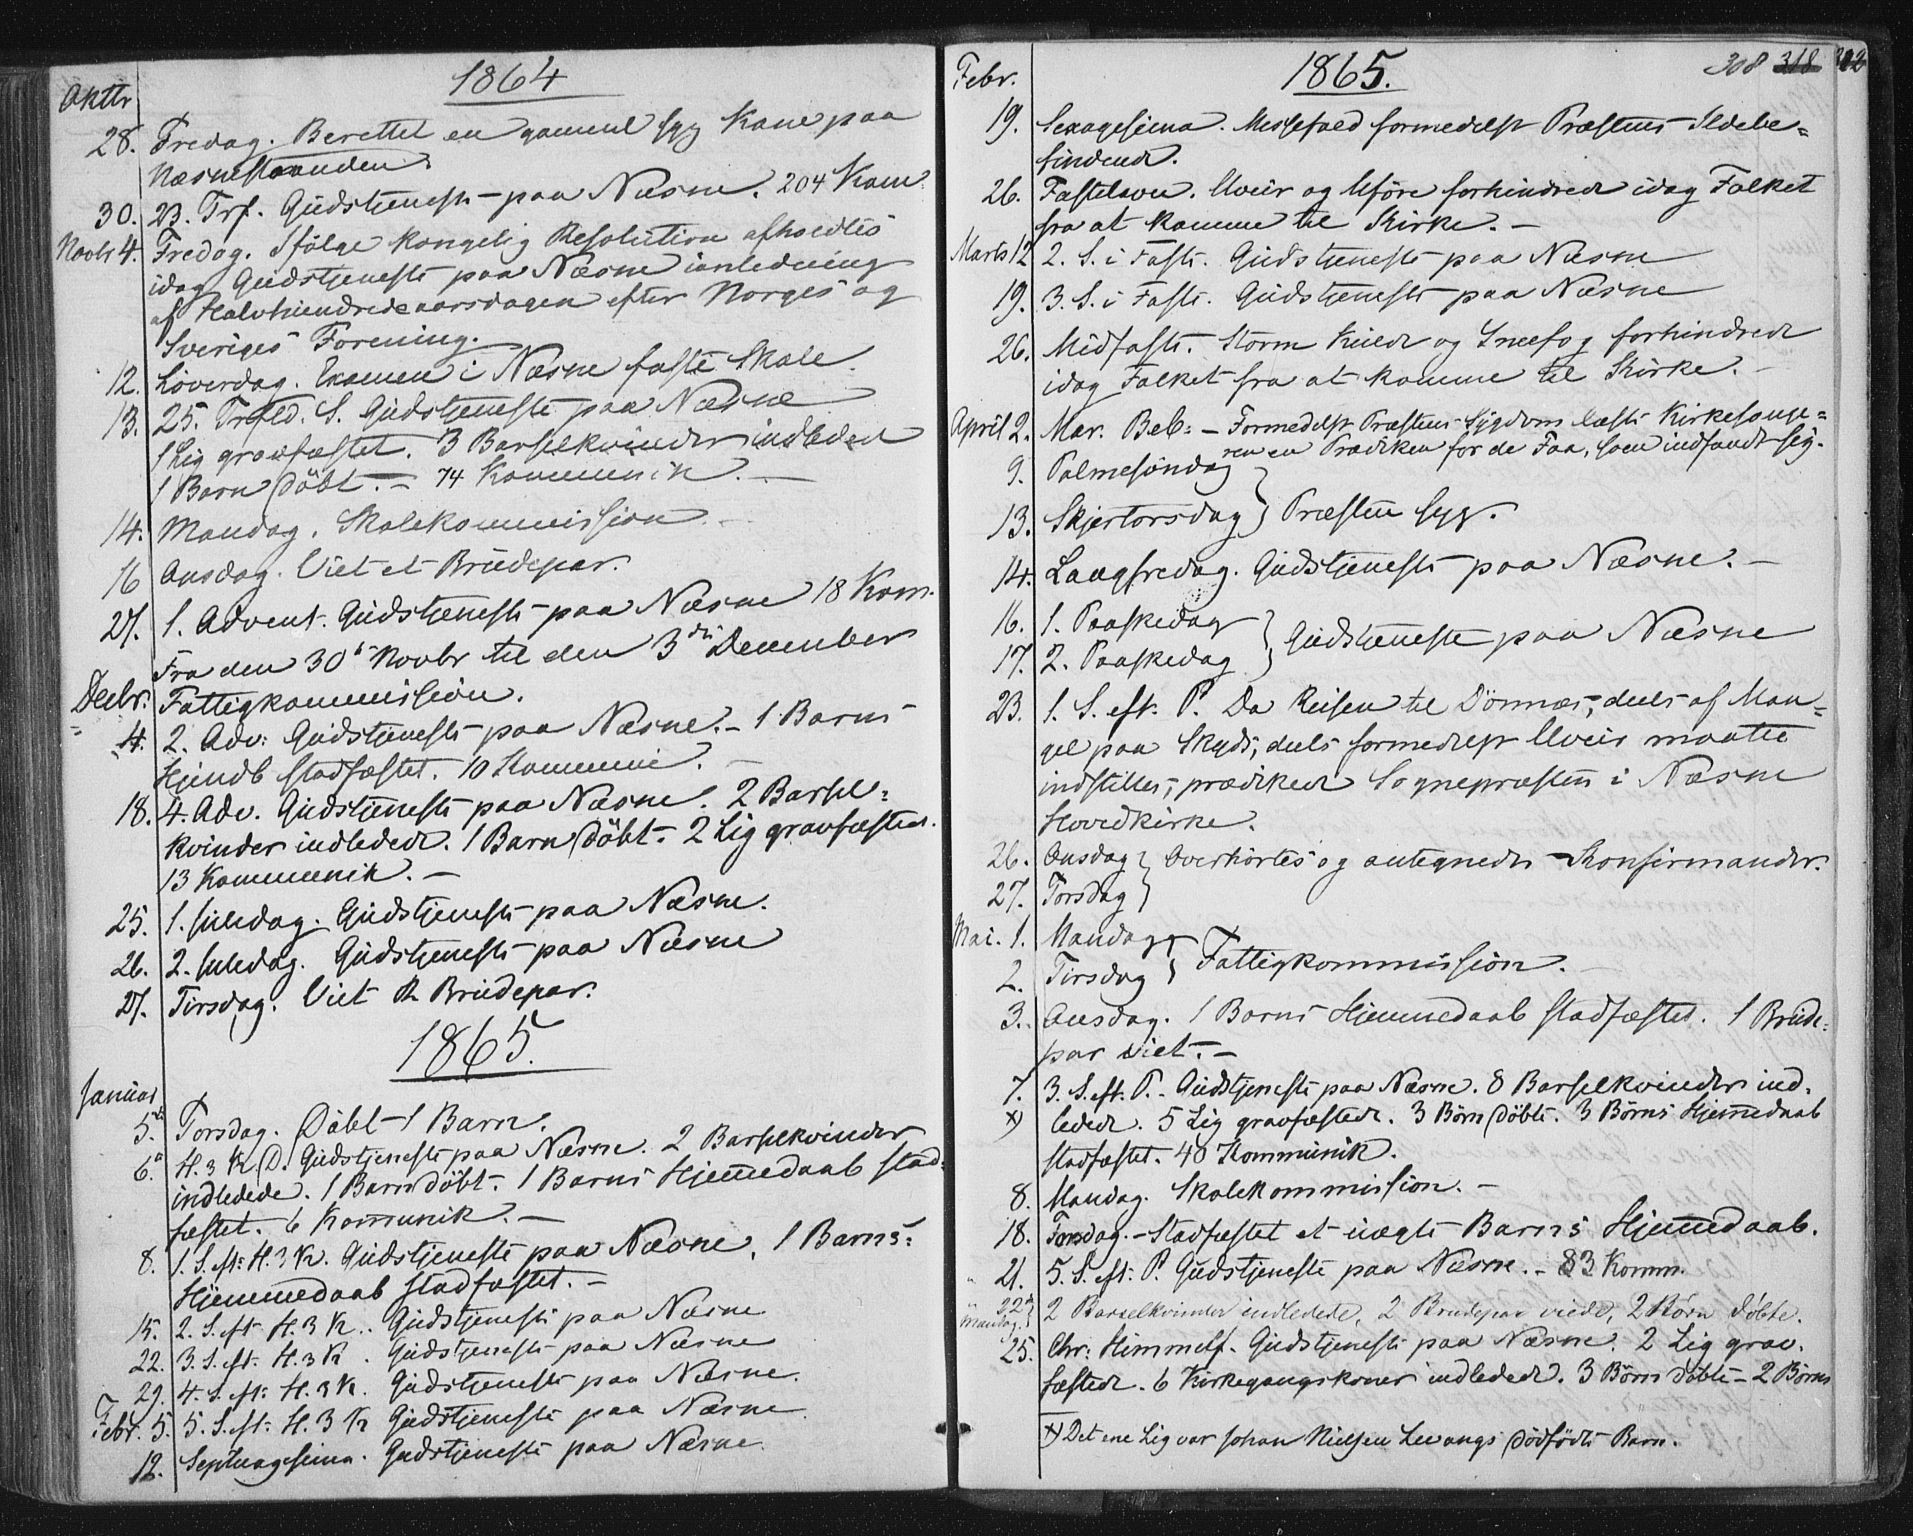 1864
Oktbr
28. Fredag. Berettet en gammel syg Kone paa
Næsnestranden.
30. 23. Trf. Gudstjeneste paa Næsne. 204 Kom
Novbr 4. Fredag. Ifölge kongelig Resolution afholdtes
idag Gudstjeneste paa Næsne ianledning
af Halvhundredeaarsdagen efter Norges og
Sveriges Forening.
12. Löverdag. Examen i Næsne faste Skole.
13. 25. Trfld. S. Gudstjeneste paa Næsne
1 Lig gravfæstet. 3 Barselkvinder indleded
1 Barn döbt. – 74 Kommunik. –
14. Mandag. Skolekommission. –
16 Onsdag. Viet et Brudepar.
27. 1. Advent. Gudstjeneste paa Næsne 18 Kom.
Fra den 30te Novbr til den 3die December
Decbr. Fattigkommission.
4. 2. Adv: Gudstjeneste paa Næsne. – 1 Barns
Hjmdb stadfæstet. 10 Kommuni. –
18. 4. Adv. Gudstjeneste paa Næsne. 2 Barsel=
kvinder indledede. 1 Barn döbt. 2 Lig gravfæsted.
13 Kommunik. –
25. 1. Juledag. Gudstjeneste paa Næsne.
26. 2. Juledag. Gudstjeneste paa Næsne
27. Tirsdag. Viet 2 Brudepar.
1865.
Januar
5. Torsdag. Döbt 1 Barn.
6. H. 3 K. D. Gudstjeneste paa Næsne. 2 Barselkvinder
indledede. 1 Barn döbt. 1 Barns Hjemmedaab stad=
fæstet. 6 Kommunik. –
8. 1. S. eft: H. 3 K. Gudstjeneste paa Næsne. 1 Barns=
Hjemmedaab stadfæstet. –
15. 2. S. eft H. 3 K.. Gudstjeneste paa Næsne
22. 3. S. eft. H. 3 K. Gudstjeneste paa Næsne
29. 4. S. eft: H. 3 K. Gudstjeneste paa Næsne.
Febr. 5. 5. S. eft: H. 3 K Gudstjeneste paa Næsne.
12. Septuagesima. Gudstjeneste paa Næsne.
1865.
308 318
Febr.
19. Sexagesima. Messefald formedelst Præstens Ildebe=
findende.
26. Fastelavn. Uveir og Uföre forhindrede idag Folket
fra at komme til Kirke. –
Marts 12 2. S. i Faste. Gudstjeneste paa Næsne
19. 3. S. i Faste. Gudstjeneste paa Næsne
26. Midfaste. Storm Kulde og Sneefog forhindrede
idag Folket fra at komme til Kirke. –
April 2. Mar. Beb: – Formedelst Præstens Sygdom læste Kirkesange=
ren en Prædiken for de Faa, som indfandt sig.
9. Palmesöndag
13. Skjertorsdag } Præsten syg.
14. Langfredag. Gudstjeneste paa Næsne. –
16. 1. Paaskedag
17. 2. Paaskedag } Gudstjeneste paa Næsne
23. 1. S. eft. P. Da Reisen til Dönnæs, deels af Man=
gel paa Skyds, deels formedelst Uveir maatte
indstilles, prædikede Sognepræsten i Næsne
Hovedkirke.
26. Onsdag } Overhörtes og antegnedes Konfirmander.
27. Torsdag }
Mai. 1. Mandag
2. Tirsdag } Fattigkommission. –
3. Onsdag. 1 Barns Hjemmedaab stadfæsted. 1 Brude=
par viet. –
7. 3. S. eft. P. Gudstjeneste paa Næsne. 8 Barselkvinder ind=
x) ledede. 5 Lig gravfæstede. 3 Börn döbte. 3 Börns Hjemmedaab
stadfæstet. 40 Kommunik.
8. Mandag. Skolekommission. –
18. Torsdag. – Stadfæstet et uægte Barns Hjemmedaab.
21. 5. S. eft: P. Gudstjeneste paa Næsne. – 83 Komm.
22 Mandag. } 2 Barselkvinder indledede, 2 Brudepar viede, 2 Børn døbte.
25. Chr: Himmelf. Gudstjeneste paa Næsne. 2 Lig grav.
fæstede. 6 Kirkegangskoner indledede. 3 Börn döbte – 2 Börns
x) Det ene Lig var Johan Nielsen Levangs dödfödte Barn.